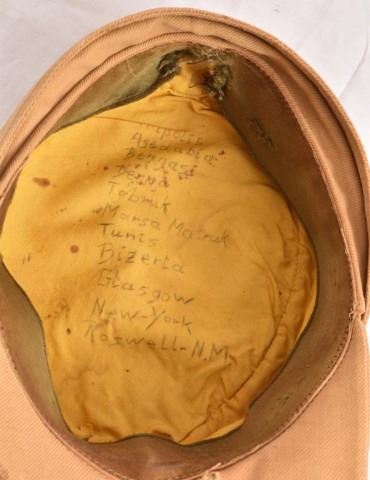 Agedabia
Bengasi
Derna
Tobruk
Marsa Matruk
Tunis
Bizerta
Glasgow
New-York
Roswell-N.M.